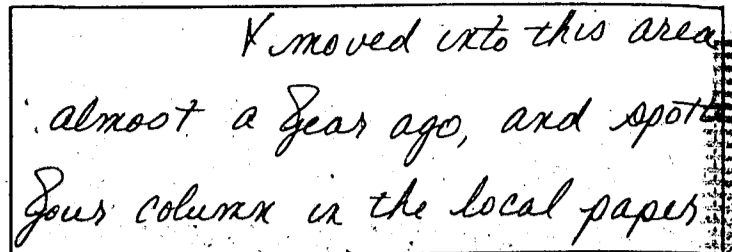 I moved into this area
almost a year ago, and spott
your column in the local paper